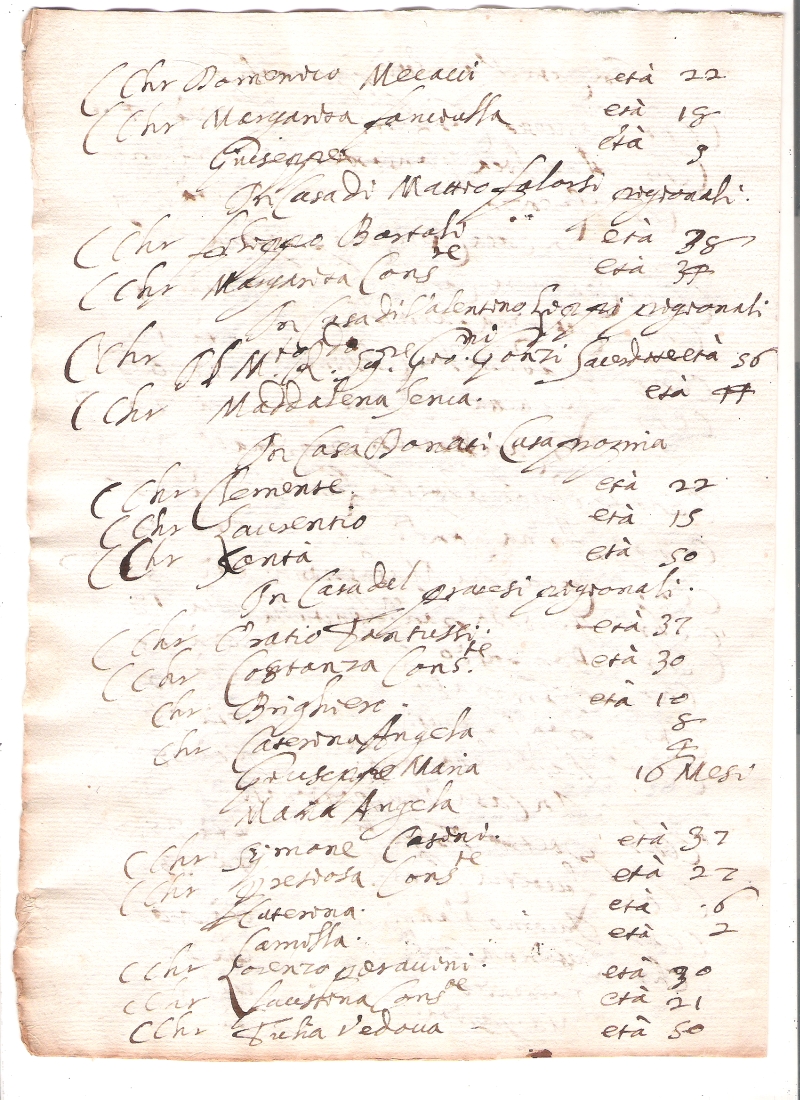 C Chr Domenico Mecacci età 22
C Chr Margarita fanciulla età 18
Giuseppe età 3
In Casa di Matteo falorsi pigionali.
C Chr Bartoli età 38
C Chr Margarita Cons.te età
In Casa di Valentino pigionali
C Chr Il M.to R.do Sig.re Gio. Gonzi Sacerdote età 56
C Chr Maddalena Serva. età 44
In Casa Donati Casa propria
C Chr Clemente. età 22
C Chr Laurentio età 15
C Chr età 50
In Casa del pigionali.
C Chr Oratio Fantussi. età 37
C Chr Costanza Cons.te età 30
Chr Brighiero. età 10
Chr Caterina Angela 8
Giuseppe Maria 4
Maria Angela 10 Mesi
C Chr Simone Casini. età 37
C Chr Pretiosa Cons.te età 27
Caterina. età 6
Camilla. età 2
C Chr Lorenzo peravini. età 30
C Chr Faustina Cons.te età 21
C Chr Giulia Vedova età 50